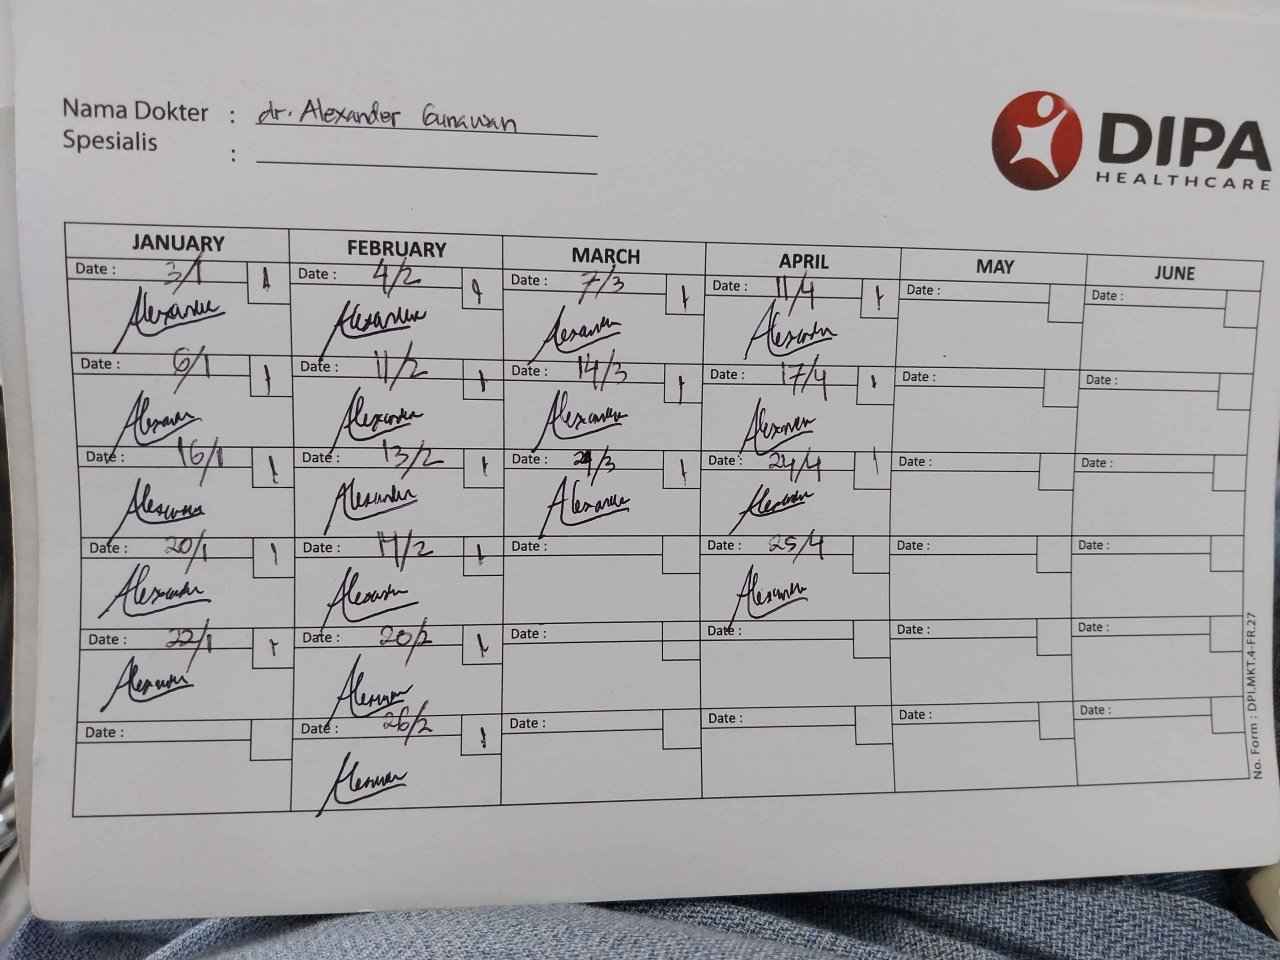 Nama Dokter : dr. Alexander Gunawan
Spesialis :
DIPA
HEALTHCARE
JANUARY FEBRUARY MARCH APRIL MAY JUNE
Date : 3/1 1 Date : 4/2 1 Date : 7/3 1 Date : 11/4 1 Date : Date :
Date : 6/1 1 Date : 11/2 1 Date : 14/3 1 Date : 17/4 1 Date : Date :
Date : 16/1 1 Date : 13/2 1 Date : 21/3 1 Date : 24/4 1 Date : Date :
Date : 20/1 1 Date : 17/2 1 Date : Date : 25/4 Date : Date :
Date : 22/1 1 Date : 20/2 1 Date : Date : Date : Date :
Date : Date : 26/2 1 Date : Date : Date : Date :
No. Form : DPI.MKT.4-FR.27